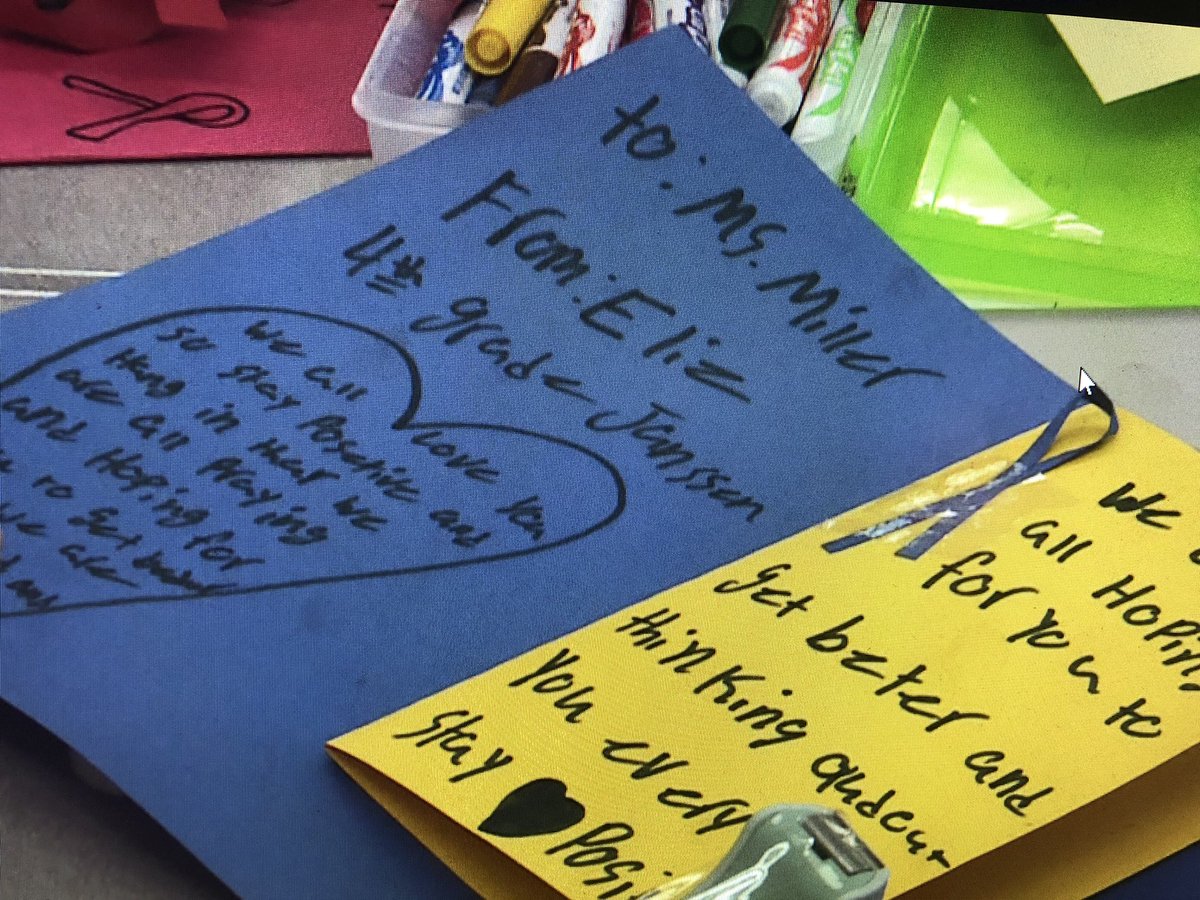 to: Ms. Miller
From: Eliz
4th grade Janssen
We all Love you
so stay Posetive and
Hang in Hear we
are all Praying
and Hoping for
to Get better
we are
We
all Hoping
for you to
get beter and
thinking
you every
Stay ♥ Posi